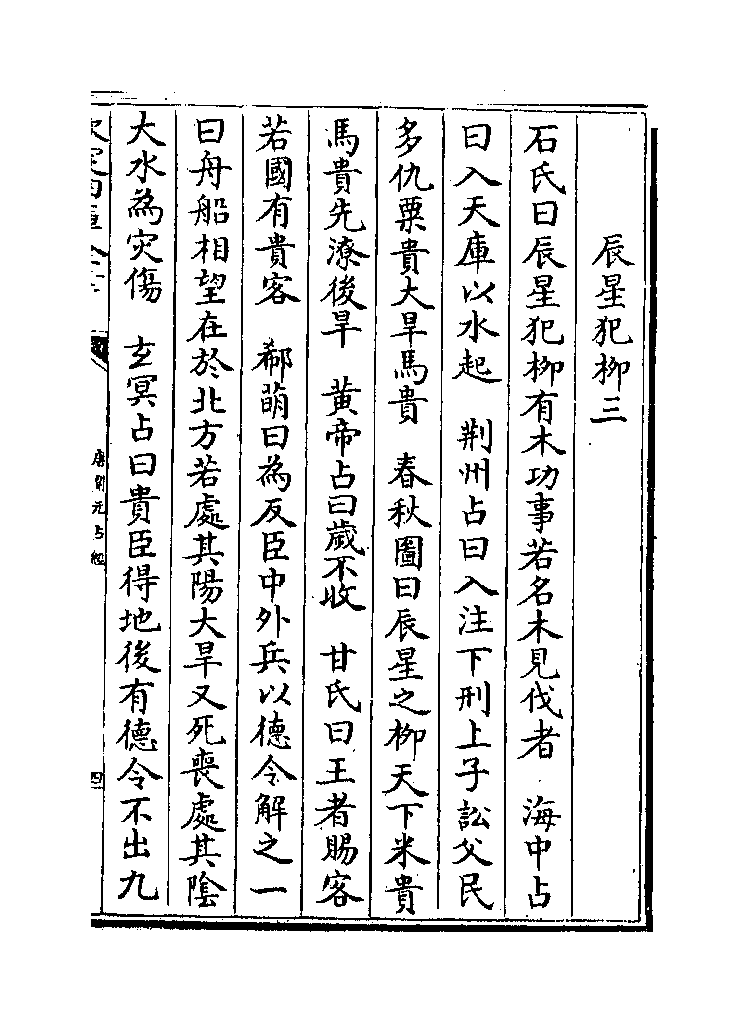 辰星犯柳三
石氏曰辰星犯柳有木功事若名木見伐者　海中占
曰入天庫以水起　荆州占曰入注下刑上子訟父民
多仇粟貴大旱馬貴　春秋圖曰辰星之柳天下米貴
馬貴先潦後旱　黄帝占曰歲不收　甘氏曰王者賜客
若國有貴客　郗萌曰為反臣中外兵以德令解之一
曰舟船相望在於北方若處其陽大旱又死喪處其隂
大水為灾傷　玄冥占曰貴臣得地後有德令不出九
唐開元占經
四